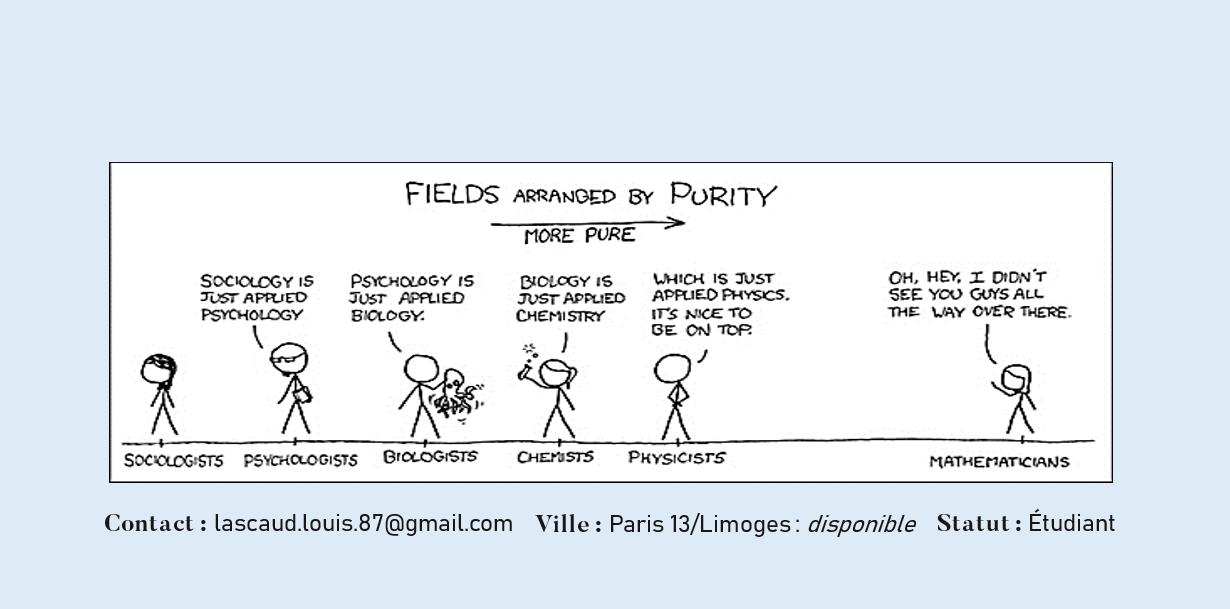 FIELDS ARRANGED BY PURITY
MORE PURE
SOCIOLOGY IS
JUST APPLIED
PSYCHOLOGY
PSYCHOLOGY IS
JUST APPLIED
BIOLOGY.
BIOLOGY IS
JUST APPLIED
CHEMISTRY
WHICH IS JUST
APPLIED PHYSICS.
IT'S NICE TO
BE ON TOP.
OH, HEY, I DIDN'T
SEE YOU GUYS ALL
THE WAY OVER THERE.
SOCIOLOGISTS
PSYCHOLOGISTS
BIOLOGISTS
CHEMISTS
PHYSICISTS
MATHEMATICIANS
Contact : lascaud.louis.87@gmail.com Ville : Paris 13/Limoges : disponible Statut : Étudiant